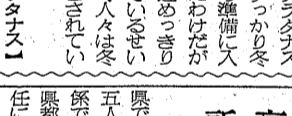 ラタナス
っかり冬
準備に入
わけだが
めっきり
いるせい
人々は冬
されてい
タナス】
県で
五人
係で
県都
任に